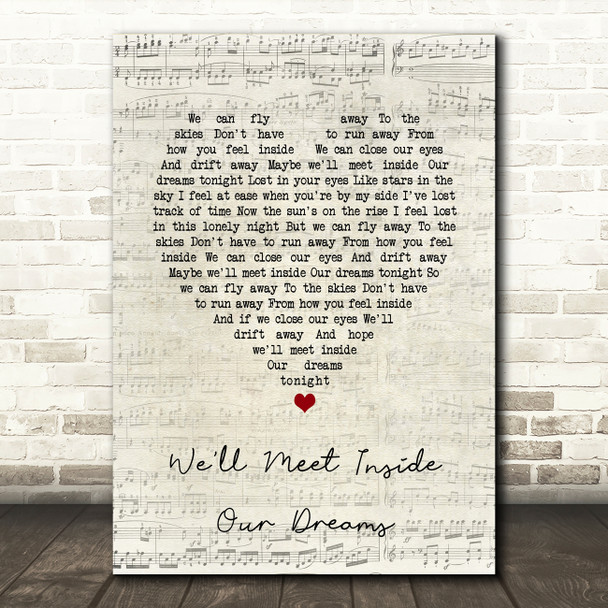 We can fly away To the
skies Don't have to run away From
how you feel inside We can close our eyes
And drift away Maybe we'll meet inside Our
dreams tonight Lost in your eyes Like stars in the
sky I feel at ease when you're by my side I've lost
track of time Now the sun's on the rise I feel lost
in this lonely night But we can fly away To the
skies Don't have to run away From how you feel
inside We can close our eyes And drift away
Maybe we'll meet inside Our dreams tonight So
we can fly away To the skies Don't have
to run away From how you feel inside
And if we close our eyes We'll
drift away And hope
we'll meet inside
Our dreams
tonight
We'll Meet Inside
Our Dreams